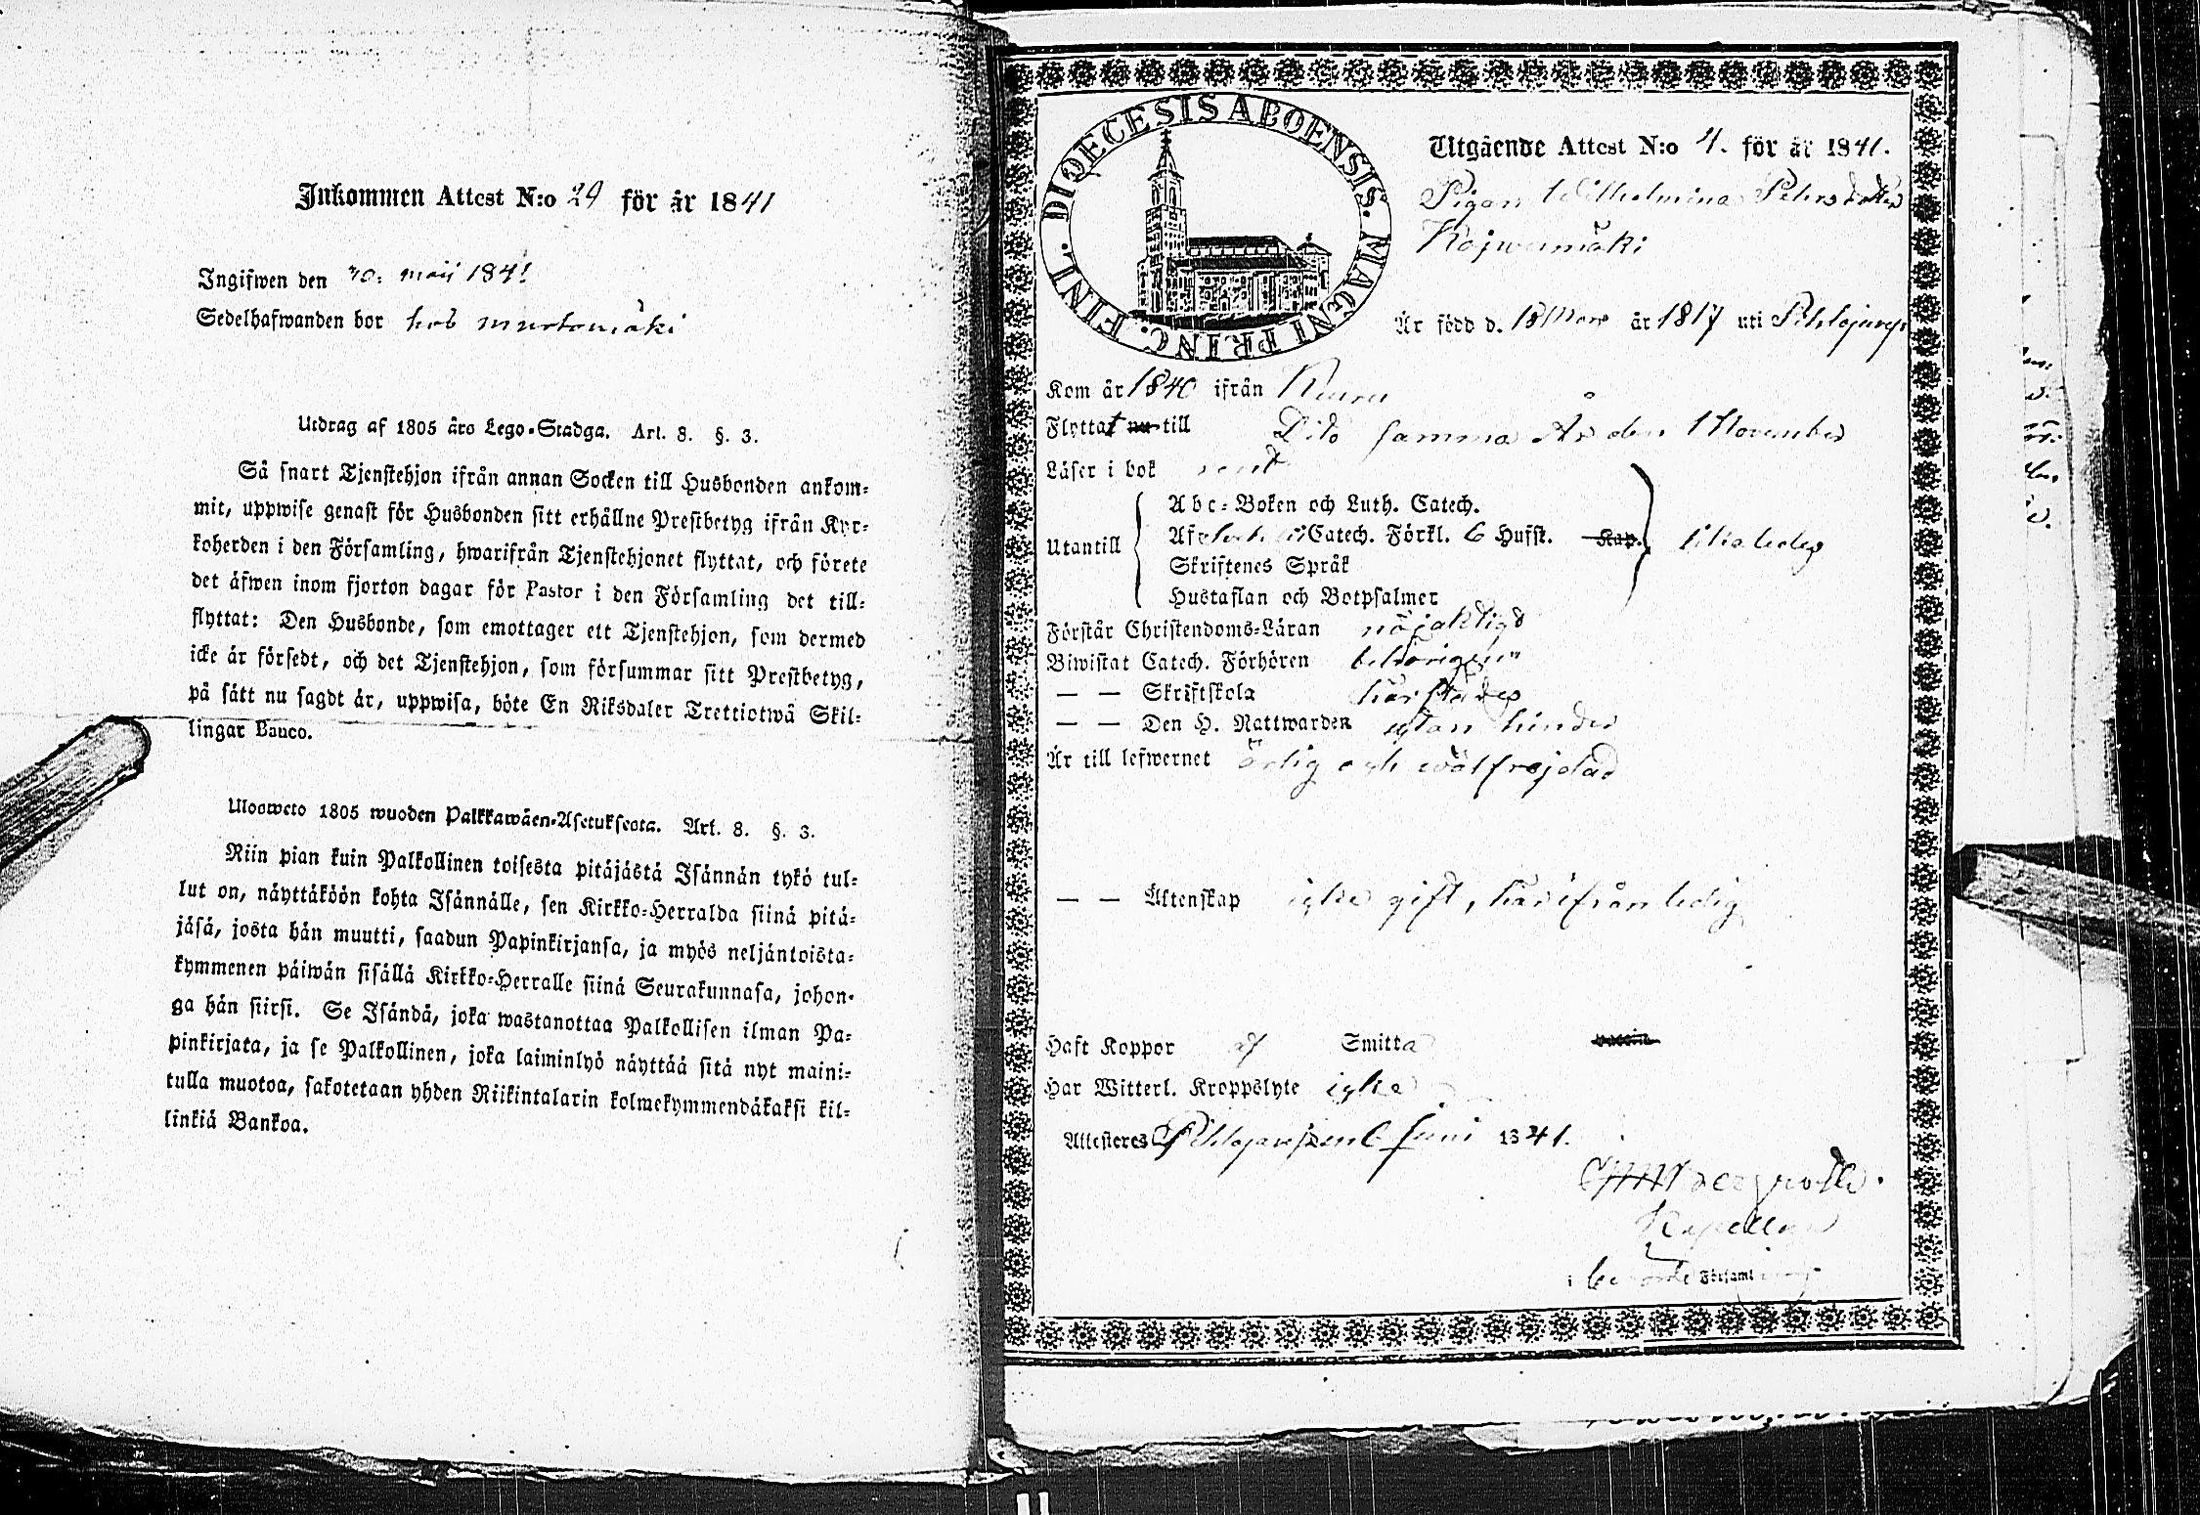 Inkommen Attest N:o 29 för år 1841
Ingifwen den 30: maij 1841
Sedelhafwanden bor hos murtomäki
Utdrag af 1805 års Lego-Stadga. Art. 8. §. 3.
Så snart Tjenstehjon ifrån annan Socken till Husbonden ankom-
mit, uppwise genast för Husbonden sitt erhållne Prestbetyg ifrån Kyr-
koherden i den Församling, hwarifrån Tjenstehjonet flyttat, och förete
det äfwen inom fjorton dagar för Pastor i den Församling det till-
flyttat: Den Husbonde, som emottager ett Tjenstehjon, som dermed
icke är försedt, och det Tjenstehjon, som försummar sitt Prestbetyg,
på sätt nu sagdt är, uppwisa, böte En Riksdaler Trettiotwå Skil-
lingar Banco.
Ulosweto 1805 wuoden Palkkawäen-Asetuksesta. Art. 8. §. 3.
Niin pian kuin Palkollinen toisesta pitäjästä Isännän tykö tul-
lut on, näyttäköön kohta Isännälle, sen Kirkko-Herralda siinä pitä-
jäsä, josta hän muutti, saadun Papinkirjansa, ja myös neljäntoista-
kymmenen päiwän sisällä Kirkko-Herralle siinä Seurakunnasa, johon-
ga hän siirsi. Se Isändä, joka wastanottaa Palkollisen ilman Pa-
pinkirjata, ja se Palkollinen, joka laiminlyö näyttää sitä nyt maini-
tulla muotoa, sakotetaan yhden Riikintalarin kolmekymmendäkaksi kil-
linkiä Bankoa.
DIOECESIS ABOENSIS. MAGNI PRINC. FINL.
Utgående Attest N:o 4. för år 1841.
Pigan Wilhelmina Petersdotter
Kojwumäki
Är född d. 18 Mars år 1817 uti Pihlajavesi
Kom år 1840 ifrån Ruovesi
Flyttat nu till Dito samma År den 1 November
Läser i bok rent
Utantill
Abc-Boken och Luth. Catech.
Catech. Förkl. 6 Hufst. Kap. likaledes
Skriftenes Språk
Hustaflan och Botpsalmer
Förstår Christendoms-Läran nöjaktigt
Biwistat Catech. Förhören behörigen
— — Skriftskola härstädes
— — Den H. Nattwarden utan hinder
Är till lefwernet ärlig och wälfrejdad
— — Äktenskap icke gift, härifrån ledig
Haft Koppor af Smitta
Har Witterl. Kroppslyte icke
Attesteras Pihlajavesi den 6 Juni 1841.
Kapellan
i berörde Församling